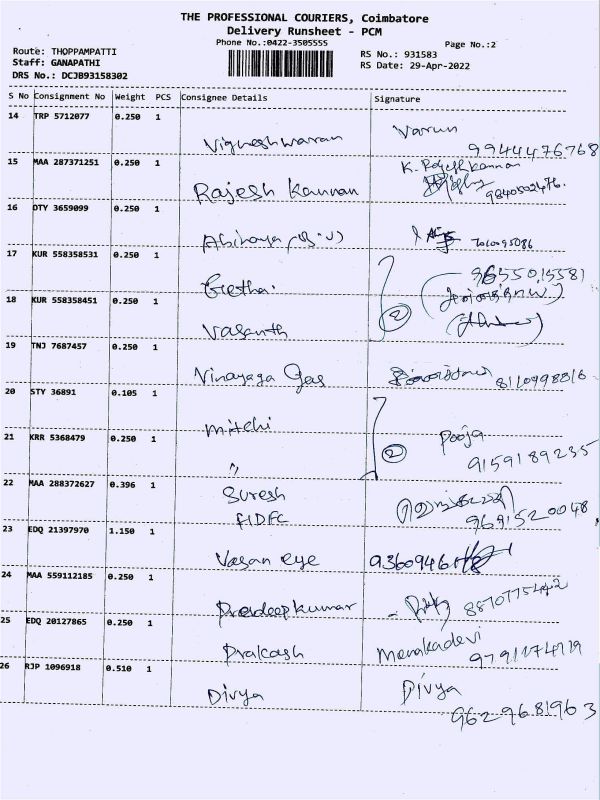 THE PROFESSIONAL COURIERS, Coimbatore
Delivery Runsheet - PCM
Phone No.:0422-3505555
Page No.:2
Route: THOPPAMPATTI
Staff: GANAPATHI
DRS No.: DCJB93158302
RS No.: 931583
RS Date: 29-Apr-2022
S No Consignment No Weight PCS Consignee Details Signature
14 TRP 5712077 0.250 1
Vigneshwaran Varun
9944476768
15 MAA 287371251 0.250 1
K. Rajesh kannan
Rajesh Kannan 9840502476.
16 DTY 3659099 0.250 1
Abinaya 7010095086
17 KUR 558358531 0.250 1
Geetha. 9655015581
18 KUR 558358451 0.250 1
2
Vasanth
19 TNJ 7687457 0.250 1
Vinayaga Gas 8110998816
20 STY 36891 0.105 1
Mitchi
21 KRR 5368479 0.250 1
Pooja
2
" 9159189235
22 MAA 288372627 0.396 1
Suresh
HDFC 9691520048
23 EDQ 21397970 1.150 1
Vasan eye
24 MAA 559112185 0.250 1
Pradeep kumar 8870775442
25 EDQ 20127865 0.250 1
Prakash Menakadevi
9791174719
26 RJP 1096918 0.510 1
Divya Divya
9629681963